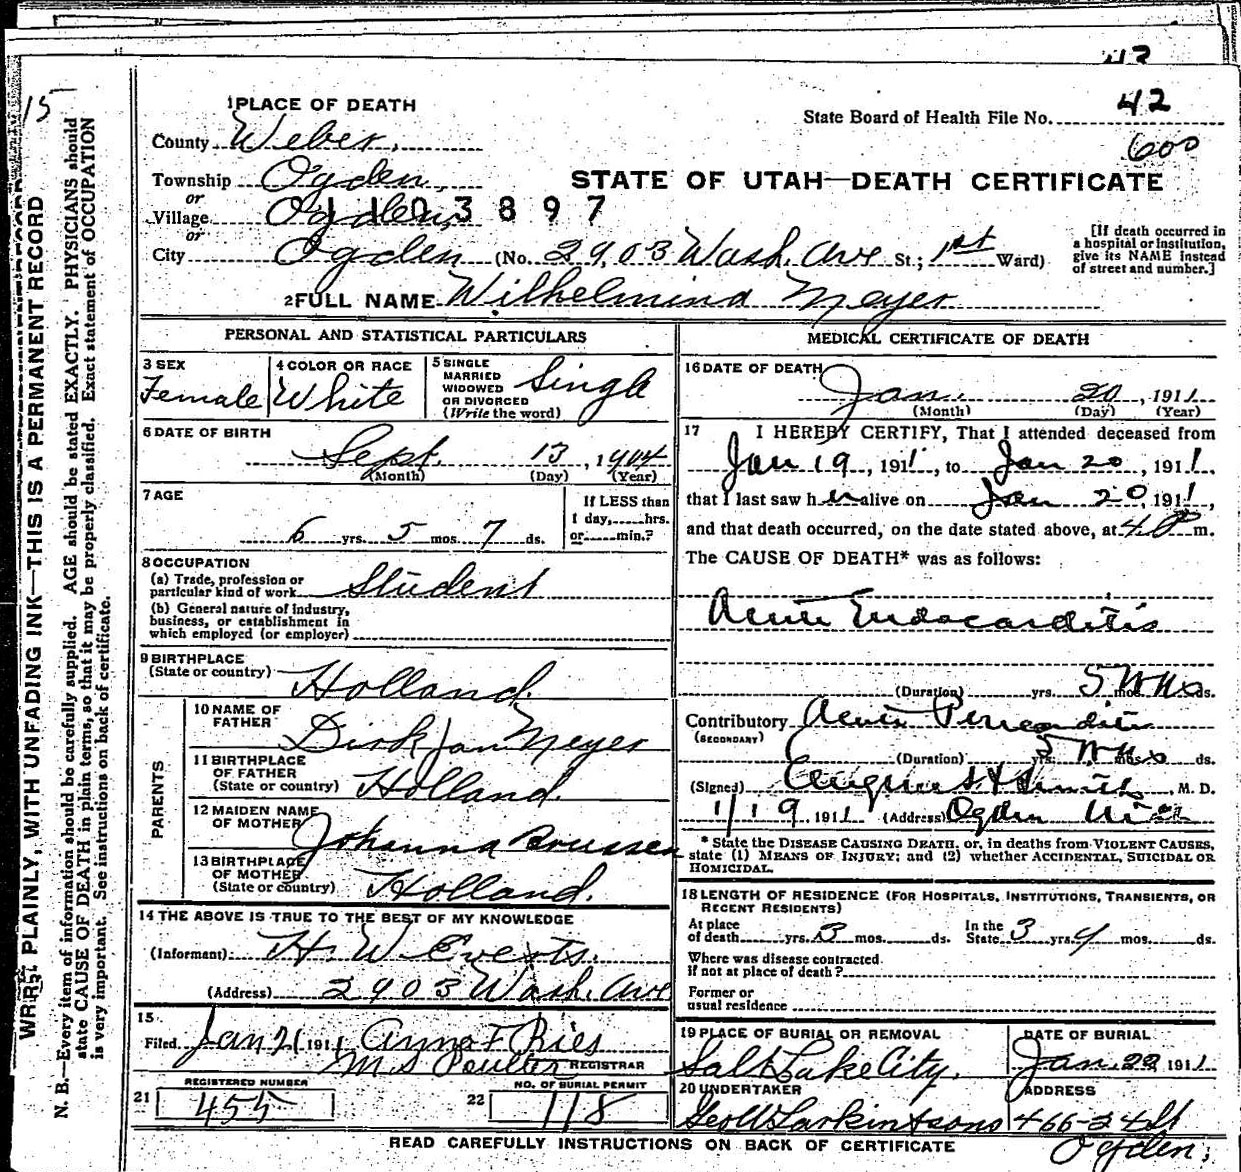 42
15
1 PLACE OF DEATH
State Board of Health File No. 42
County Weber,
600
Township Ogden,
STATE OF UTAH—DEATH CERTIFICATE
or
Village Ogden,
3 8 9 7
or
City Ogden (No. 2903 Wash. Ave St.; 1st Ward)
[If death occurred in
a hospital or institution,
give its NAME instead
of street and number.]
2 FULL NAME Wilhelmina Meyer
PERSONAL AND STATISTICAL PARTICULARS
3 SEX
Female
4 COLOR OR RACE
White
5 SINGLE
MARRIED
WIDOWED
OR DIVORCED
(Write the word)
Single
6 DATE OF BIRTH
Sept. 13, 1904
(Month) (Day) (Year)
7 AGE
6 yrs. 5 mos. 7 ds.
If LESS than
1 day, hrs.
or min.?
8 OCCUPATION
(a) Trade, profession or
particular kind of work Student
(b) General nature of industry,
business, or establishment in
which employed (or employer)
9 BIRTHPLACE
(State or country) Holland.
PARENTS
10 NAME OF
FATHER Dirk Jan Meyer
11 BIRTHPLACE
OF FATHER
(State or country) Holland.
12 MAIDEN NAME
OF MOTHER Johanna Brussen
13 BIRTHPLACE
OF MOTHER
(State or country) Holland.
14 THE ABOVE IS TRUE TO THE BEST OF MY KNOWLEDGE
(Informant) H. W. Everts.
(Address) 2903 Wash. Ave
15
Filed Jan 21 1911 Anna F Ries
M S Poulter REGISTRAR
21 REGISTERED NUMBER
455
22 NO. OF BURIAL PERMIT
118
MEDICAL CERTIFICATE OF DEATH
16 DATE OF DEATH
Jan. 20, 1911
(Month) (Day) (Year)
17 I HEREBY CERTIFY, That I attended deceased from
Jan 19, 1911, to Jan 20, 1911,
that I last saw her alive on Jan 20, 1911,
and that death occurred, on the date stated above, at 4.P m.
The CAUSE OF DEATH* was as follows:
Acute Endocarditis
(Duration) yrs. 5 Wks mos. ds.
Contributory Acute Pericarditis
(SECONDARY)
(Duration) yrs. 5 Wks mos. ds.
(Signed) Smith, M. D.
1/19 1911 (Address) Ogden Utah
* State the DISEASE CAUSING DEATH, or, in deaths from VIOLENT CAUSES,
state (1) MEANS OF INJURY; and (2) whether ACCIDENTAL, SUICIDAL OR
HOMICIDAL.
18 LENGTH OF RESIDENCE (FOR HOSPITALS, INSTITUTIONS, TRANSIENTS, OR
RECENT RESIDENTS)
At place
of death yrs. 3 mos. ds.
In the
State 3 yrs. 9 mos. ds.
Where was disease contracted.
if not at place of death?
Former or
usual residence
19 PLACE OF BURIAL OR REMOVAL
Salt Lake City.
DATE OF BURIAL
Jan. 22 1911
20 UNDERTAKER
Geo W Larkin & sons
ADDRESS
466-24 St
Ogden,
READ CAREFULLY INSTRUCTIONS ON BACK OF CERTIFICATE
WRITE PLAINLY, WITH UNFADING INK—THIS IS A PERMANENT RECORD
N. B.—Every item of information should be carefully supplied. AGE should be stated EXACTLY. PHYSICIANS should
state CAUSE OF DEATH in plain terms, so that it may be properly classified. Exact statement of OCCUPATION
is very important. See instructions on back of certificate.